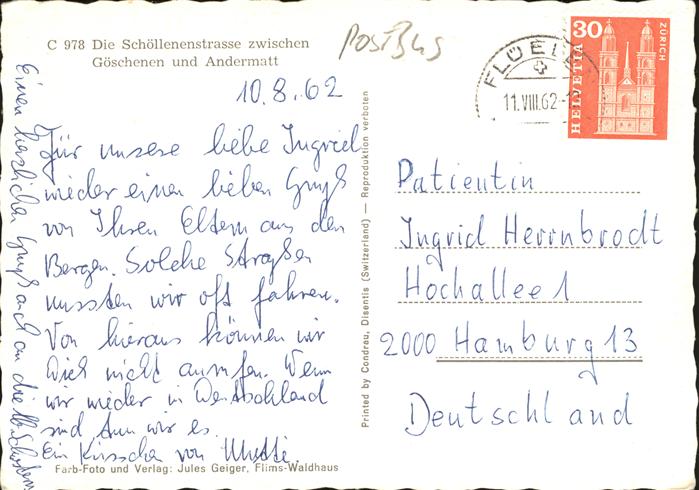 C 978 Die Schöllenenstrasse zwischen
Göschenen und Andermatt
PostBus
10.8.62
Für unsere liebe Ingrid
wieder einen lieben Gruß
von Ihren Eltern aus den
Bergen. Solche Straßen
mussten wir oft fahren.
Von hieraus können wir
Dich nicht anrufen. Wenn
wir wieder in Deutschland
sind, tun wir es.
Ein Küsschen von Mutti.
Einen herzlichen Gruß auch an die
Farb-Foto und Verlag: Jules Geiger, Flims-Waldhaus
Printed by Condrau, Disentis (Switzerland) — Reproduktion verboten
FLÜELEN
11.VIII.62
30
HELVETIA
ZÜRICH
Patientin
Ingrid Herrnbrodt
Hochallee 1
2000 Hamburg 13
Deutschland